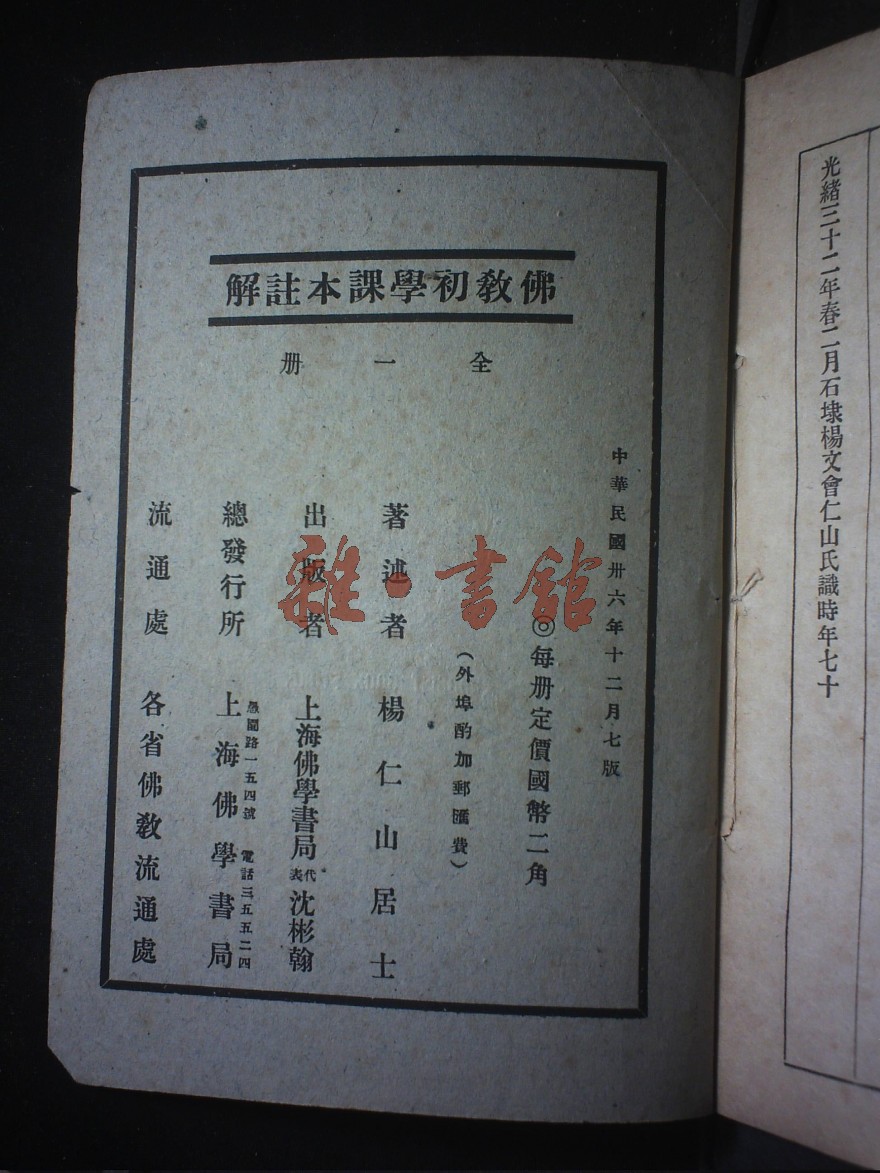 光緒三十二年春二月石埭楊文會仁山氏識時年七十
佛教初學課本註解
全一册
中華民國卅六年十二月七版
◎每册定價國幣二角
（外埠酌加郵匯費）
著述者 楊仁山居士
出版者 上海佛學書局代表沈彬翰
總發行所 上海佛學書局
愚園路一五四號 電話三五五二四
流通處 各省佛教流通處
雜·書館